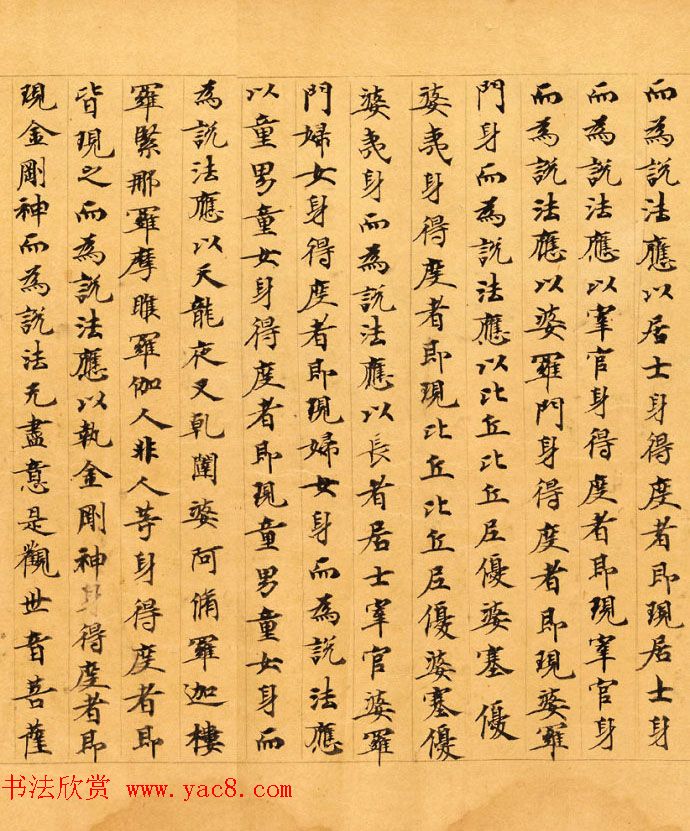 而為說法應以居士身得度者即現居士身
而為說法應以宰官身得度者即現宰官身
而為說法應以婆羅門身得度者即現婆羅
門身而為說法應以比丘比丘尼優婆塞優
婆夷身得度者即現比丘比丘尼優婆塞優
婆夷身而為說法應以長者居士宰官婆羅
門婦女身得度者即現婦女身而為說法應
以童男童女身得度者即現童男童女身而
為說法應以天龍夜叉乹闥婆阿脩羅迦樓
羅緊那羅摩睺羅伽人非人等身得度者即
皆現之而為說法應以執金剛神身得度者即
現金剛神而為說法无盡意是觀世音菩薩
书法欣赏 www.yac8.com